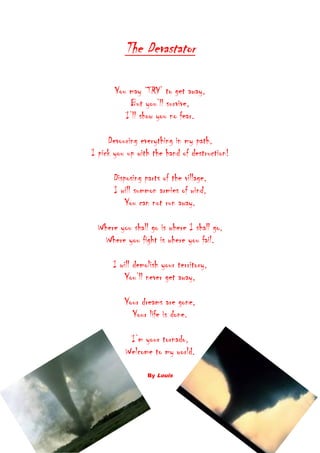 The Devastator
You may "TRY" to get away,
But you'll survive,
I'll show you no fear.
Devouring everything in my path,
I pick you up with the hand of destruction!
Disposing parts of the village,
I will summon armies of wind,
You can not run away.
Where you shall go is where I shall go,
Where you fight is where you fail.
I will demolish your territory,
You'll never get away,
Your dreams are gone,
Your life is done.
I'm your tornado,
Welcome to my world.
By Louis